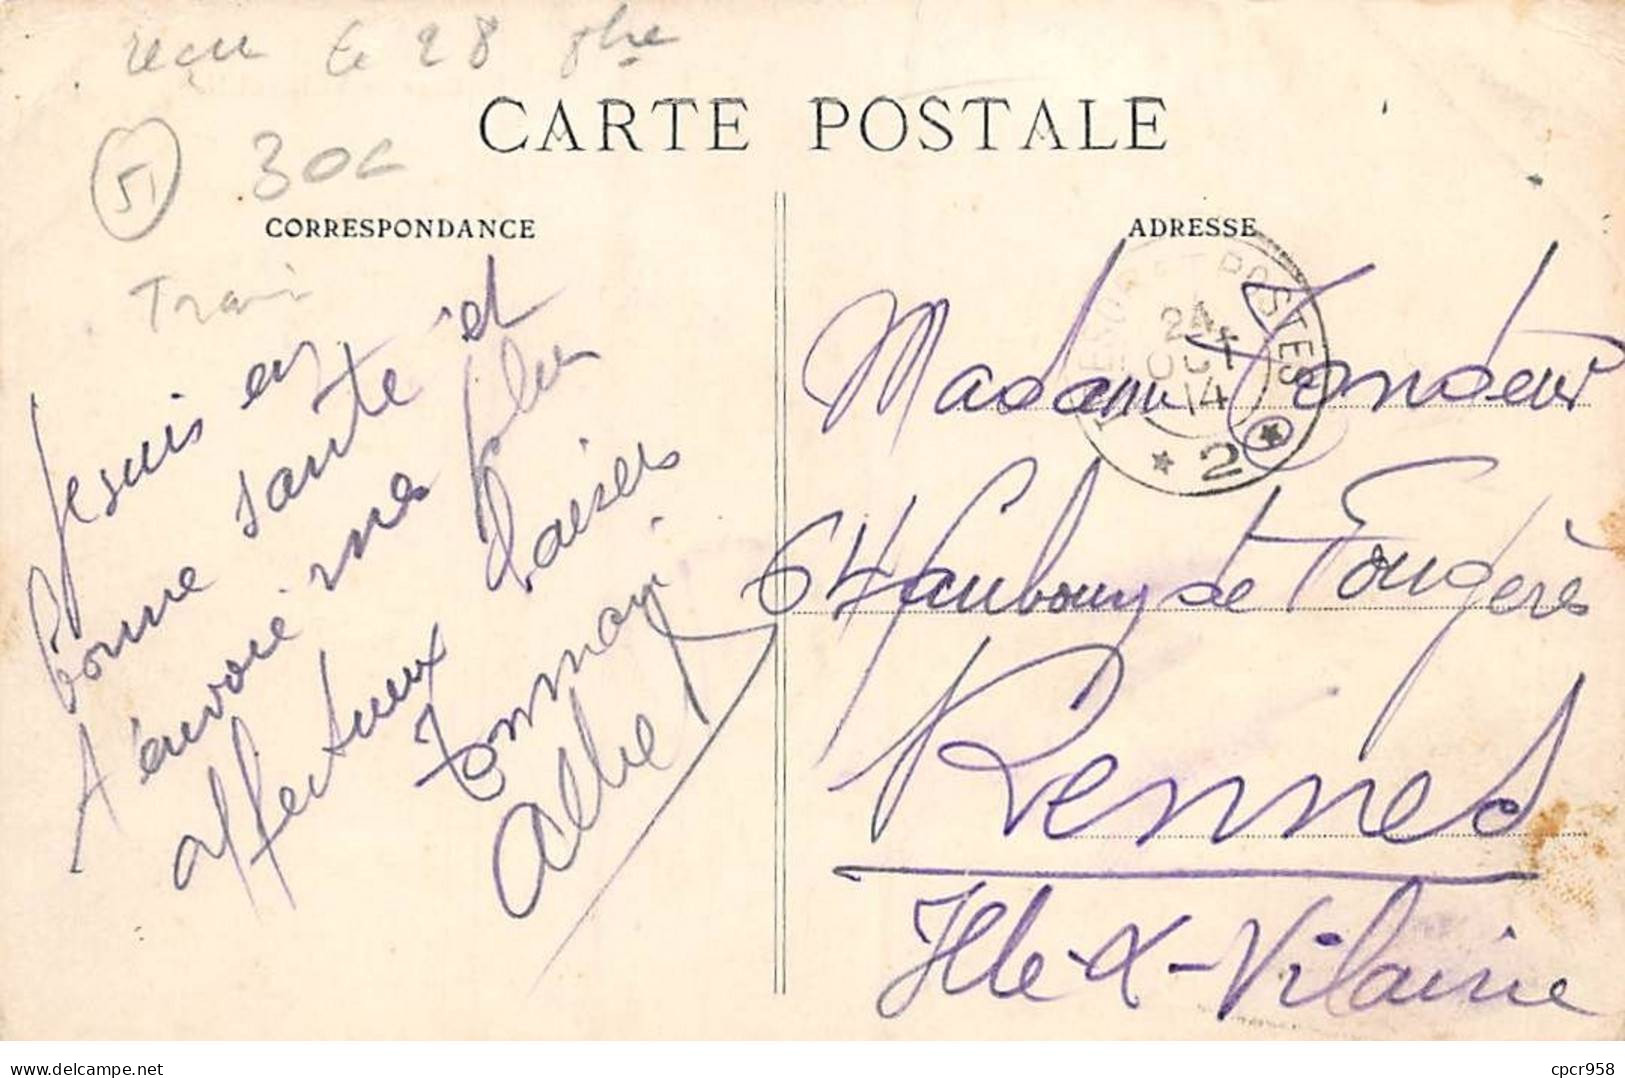 reçu le 28 8bre
CARTE POSTALE
51
30c
CORRESPONDANCE
ADRESSE
Train
Je suis en
bonne santé et
t'envoie mes plus
affectueux baisers
Ton mari
Albert
TRESOR ET POSTES
24
OCT
14
* 2 *
Madame Tondeur
64 faubourg de Fougères
Rennes
Ille-&-Vilaine
cpcr958